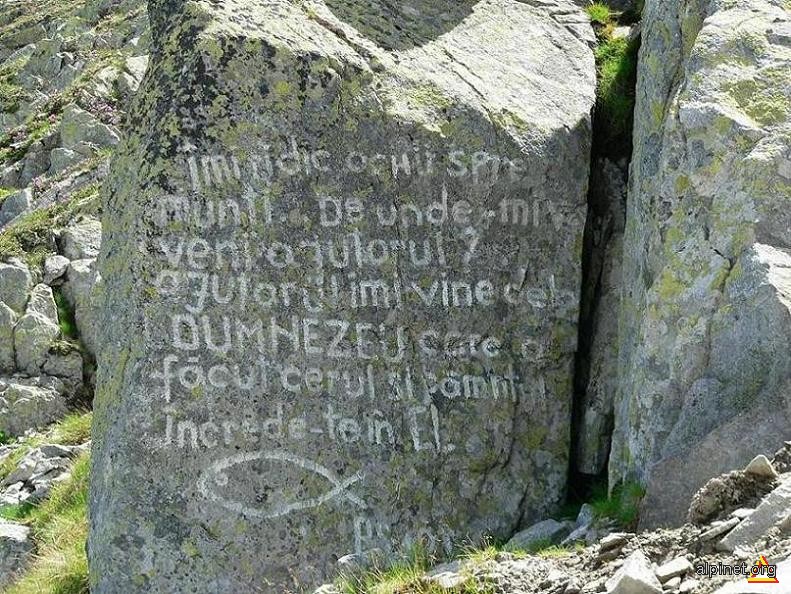 Îmi ridic ochii spre
munți... De unde-mi va
veni agutorul ?
agutorul imi vine dela
DUMNEZEU care a
făcut cerul și pămîntul
increde-te în El.
alpinet.org